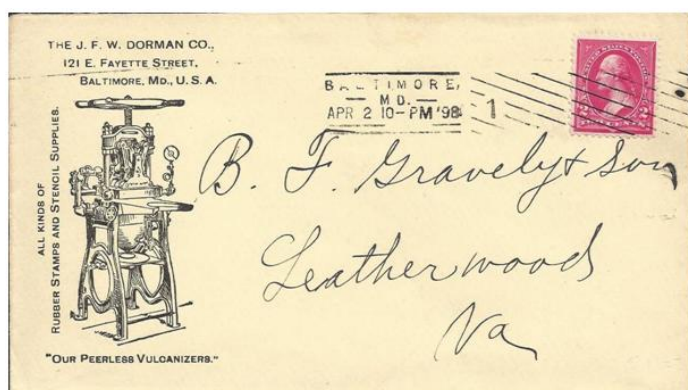 THE J. F. W. DORMAN CO.,
121 E. FAYETTE STREET,
BALTIMORE, MD., U. S. A.
ALL KINDS OF
RUBBER STAMPS AND STENCIL SUPPLIES.
"OUR PEERLESS VULCANIZERS."
BALTIMORE,
MD.
APR 2 10-PM '98
1
B. F. Gravely & Son
Leatherwood
Va